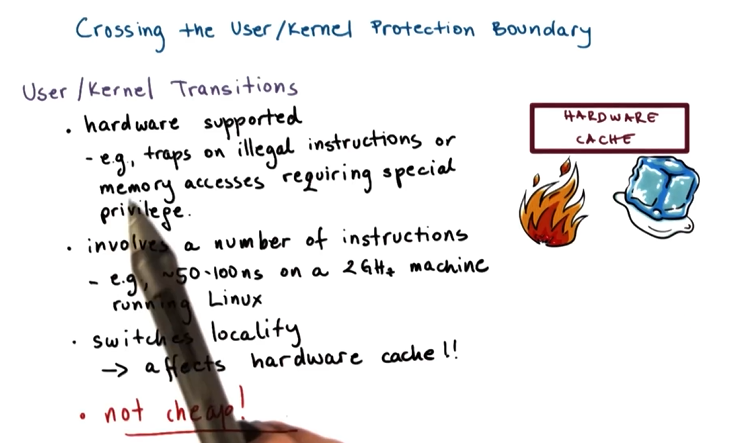 Crossing the User/Kernel Protection Boundary
User/Kernel Transitions
• hardware supported
- e.g., traps on illegal instructions or
memory accesses requiring special
privilege.
• involves a number of instructions
- e.g., ~50-100ns on a 2GHz machine
running Linux
• switches locality
→ affects hardware cache!!
• not cheap!
HARDWARE
CACHE